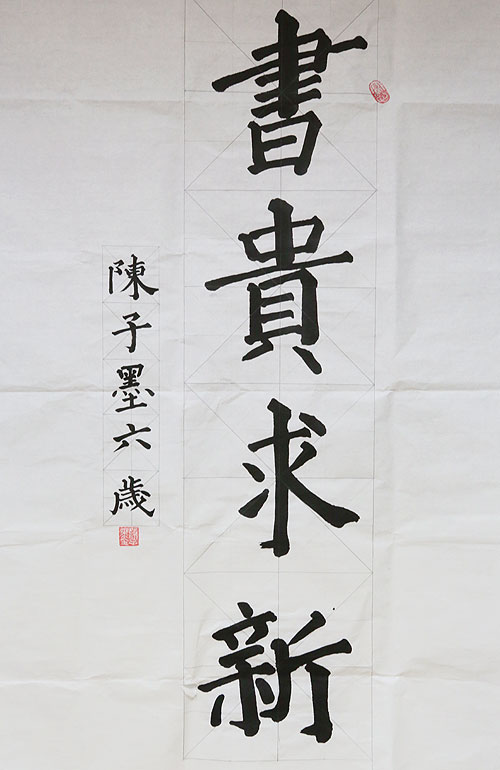 書貴求新
陳子墨六歲